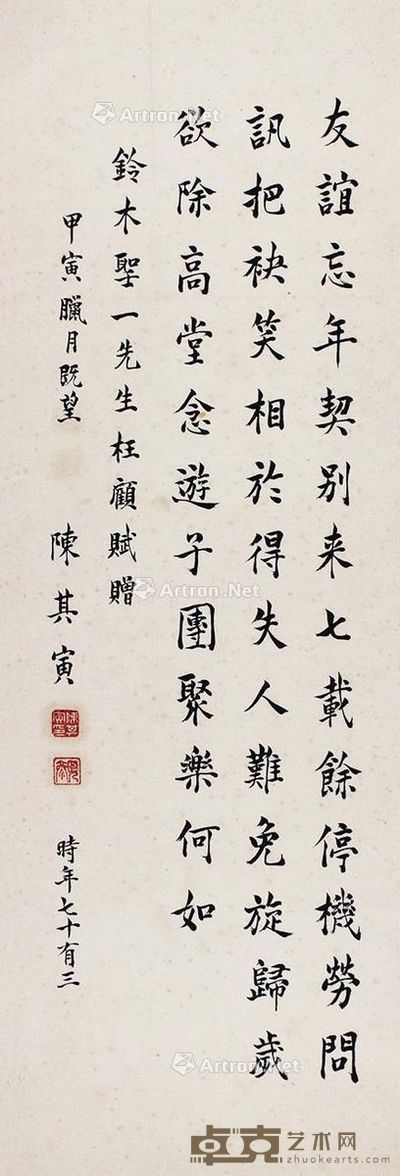 友誼忘年契別来七載餘停機勞問
訊把袂笑相於得失人難免旋歸歲
欲除高堂念遊子團聚樂何如
鈴木聖一先生枉顧賦贈
甲寅臘月既望
陳其寅
時年七十有三
Artron.Net
Artron.Net
Artron.Net
卓克艺术网
zhuokearts.com